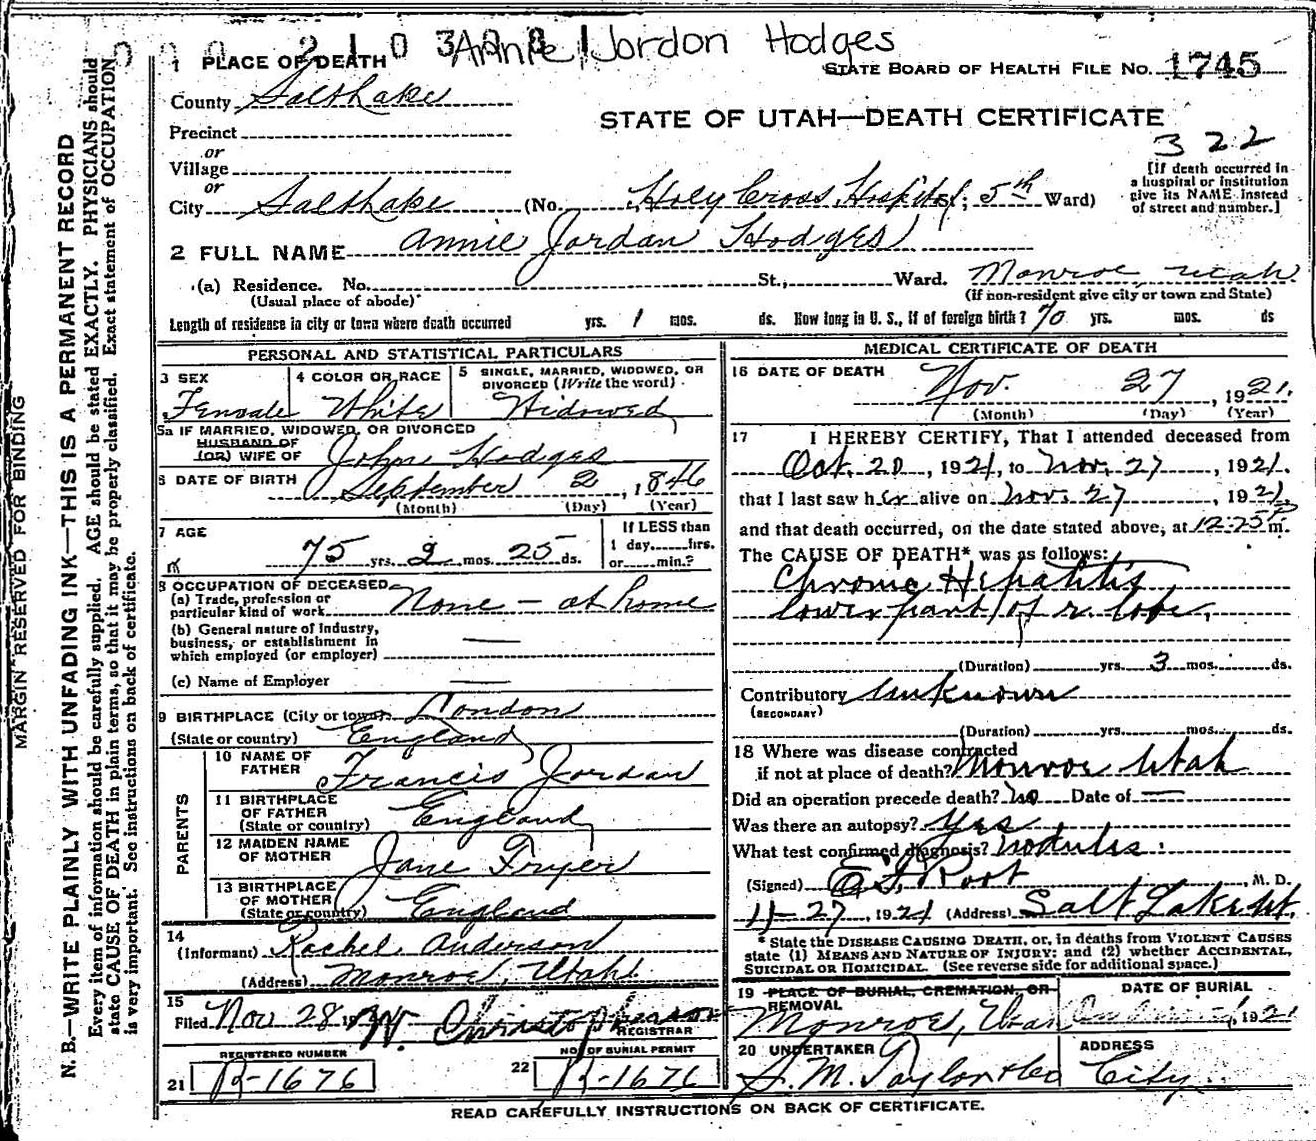 Annie Jordon Hodges
1 PLACE OF DEATH
STATE BOARD OF HEALTH FILE NO. 1745
County Salt Lake
STATE OF UTAH—DEATH CERTIFICATE
Precinct
322
or
Village
or
City Salt Lake (No. Holy Cross Hospital St; 5th Ward)
[If death occurred in
a hospital or institution
give its NAME instead
of street and number.]
2 FULL NAME Annie Jordan Hodges
(a) Residence. No. St., Ward. Monroe Utah
(Usual place of abode)
(If non-resident give city or town and State)
Length of residence in city or town where death occurred yrs. 1 mos. ds. How long in U. S., if of foreign birth? 70 yrs. mos. ds
PERSONAL AND STATISTICAL PARTICULARS
3 SEX
Female
4 COLOR OR RACE
White
5 SINGLE, MARRIED, WIDOWED, OR
DIVORCED (Write the word)
Widowed
5a IF MARRIED, WIDOWED, OR DIVORCED
HUSBAND OF
(OR) WIFE OF John Hodges
6 DATE OF BIRTH September 2, 1846
(Month) (Day) (Year)
7 AGE
75 yrs. 2 mos. 25 ds.
If LESS than
1 day......hrs.
or......min.?
8 OCCUPATION OF DECEASED
(a) Trade, profession or
particular kind of work None - at home
(b) General nature of industry,
business, or establishment in
which employed (or employer)
(c) Name of Employer
9 BIRTHPLACE (City or town) London
(State or country) England
PARENTS
10 NAME OF
FATHER Francis Jordan
11 BIRTHPLACE
OF FATHER
(State or country) England
12 MAIDEN NAME
OF MOTHER Jane Fryer
13 BIRTHPLACE
OF MOTHER
(State or country) England
14
(Informant) Rachel Anderson
(Address) Monroe, Utah
15
Filed Nov 28 W. Christopherson
REGISTRAR
REGISTERED NUMBER
21 B-1676
NO. OF BURIAL PERMIT
22 B-1676
MEDICAL CERTIFICATE OF DEATH
16 DATE OF DEATH
Nov. 27, 1921.
(Month) (Day) (Year)
17 I HEREBY CERTIFY, That I attended deceased from
Oct. 20, 1921, to Nov. 27, 1921.
that I last saw her alive on Nov. 27, 1921,
and that death occurred, on the date stated above, at 12:25 P m.
The CAUSE OF DEATH* was as follows:
Chronic Hepatitis
lower part of r. lobe.
(Duration) yrs. 3 mos. ds.
Contributory unknown
(SECONDARY)
(Duration) yrs. mos. ds.
18 Where was disease contracted
if not at place of death? Monroe Utah
Did an operation precede death? No Date of —
Was there an autopsy? Yes
What test confirmed diagnosis? nodules
(Signed) Root, M. D.
11-27, 1921 (Address) Salt Lake Ut.
* State the DISEASE CAUSING DEATH, or, in deaths from VIOLENT CAUSES
state (1) MEANS AND NATURE OF INJURY; and (2) whether ACCIDENTAL,
SUICIDAL OR HOMICIDAL. (See reverse side for additional space.)
19 PLACE OF BURIAL, CREMATION, OR
REMOVAL
Monroe, Utah
DATE OF BURIAL
1921
20 UNDERTAKER
S. M. Taylor & Co
ADDRESS
City
READ CAREFULLY INSTRUCTIONS ON BACK OF CERTIFICATE.
MARGIN RESERVED FOR BINDING
N. B.—WRITE PLAINLY WITH UNFADING INK—THIS IS A PERMANENT RECORD
Every item of information should be carefully supplied. AGE should be stated EXACTLY. PHYSICIANS should
state CAUSE OF DEATH in plain terms, so that it may be properly classified. Exact statement of OCCUPATION
is very important. See instructions on back of certificate.